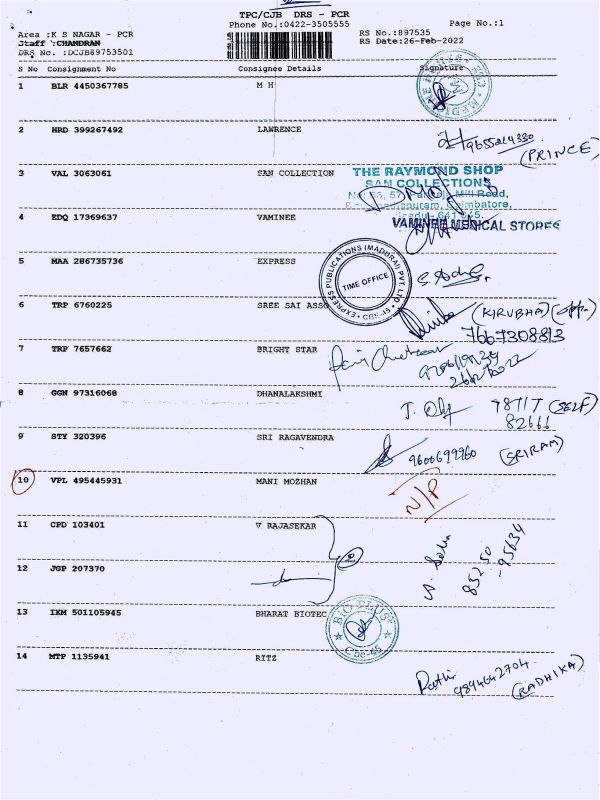 TPC/CJB DRS - PCR
Phone No.:0422-3505555
Page No.:1
Area :K S NAGAR - PCR
RS No.:897535
Staff :CHANDRAN
RS Date:26-Feb-2022
DRS No. :DCJB89753501
S No Consignment No Consignee Details Signature
1 BLR 4450367785 M H
2 HRD 399267492 LAWRENCE
(PRINCE)
3 VAL 3063061 SAN COLLECTION
THE RAYMOND SHOP
SAN COLLECTIONS
Mill Road,
Coimbatore,
4 EDQ 17369637 VAMINEE
VAMINEE MEDICAL STORES
5 MAA 286735736 EXPRESS
EXPRESS PUBLICATIONS (MADURAI) PVT. LTD
TIME OFFICE
CBE-45
6 TRP 6760225 SREE SAI ASSO
(KIRUBHA)
7667308813
7 TRP 7657662 BRIGHT STAR
8 GGN 97316068 DHANALAKSHMI
(SELF)
82666
9 STY 320396 SRI RAGAVENDRA
9600699960
(SRIRAM)
10 VPL 495445931 MANI MOZHAN
N/P
11 CPD 103401 V RAJASEKAR
12 JGP 207370
85250
95634
13 IXM 501105945 BHARAT BIOTEC
BIO PLUS
14 MTP 1135941 RITZ
9894642704
(RADHIKA)